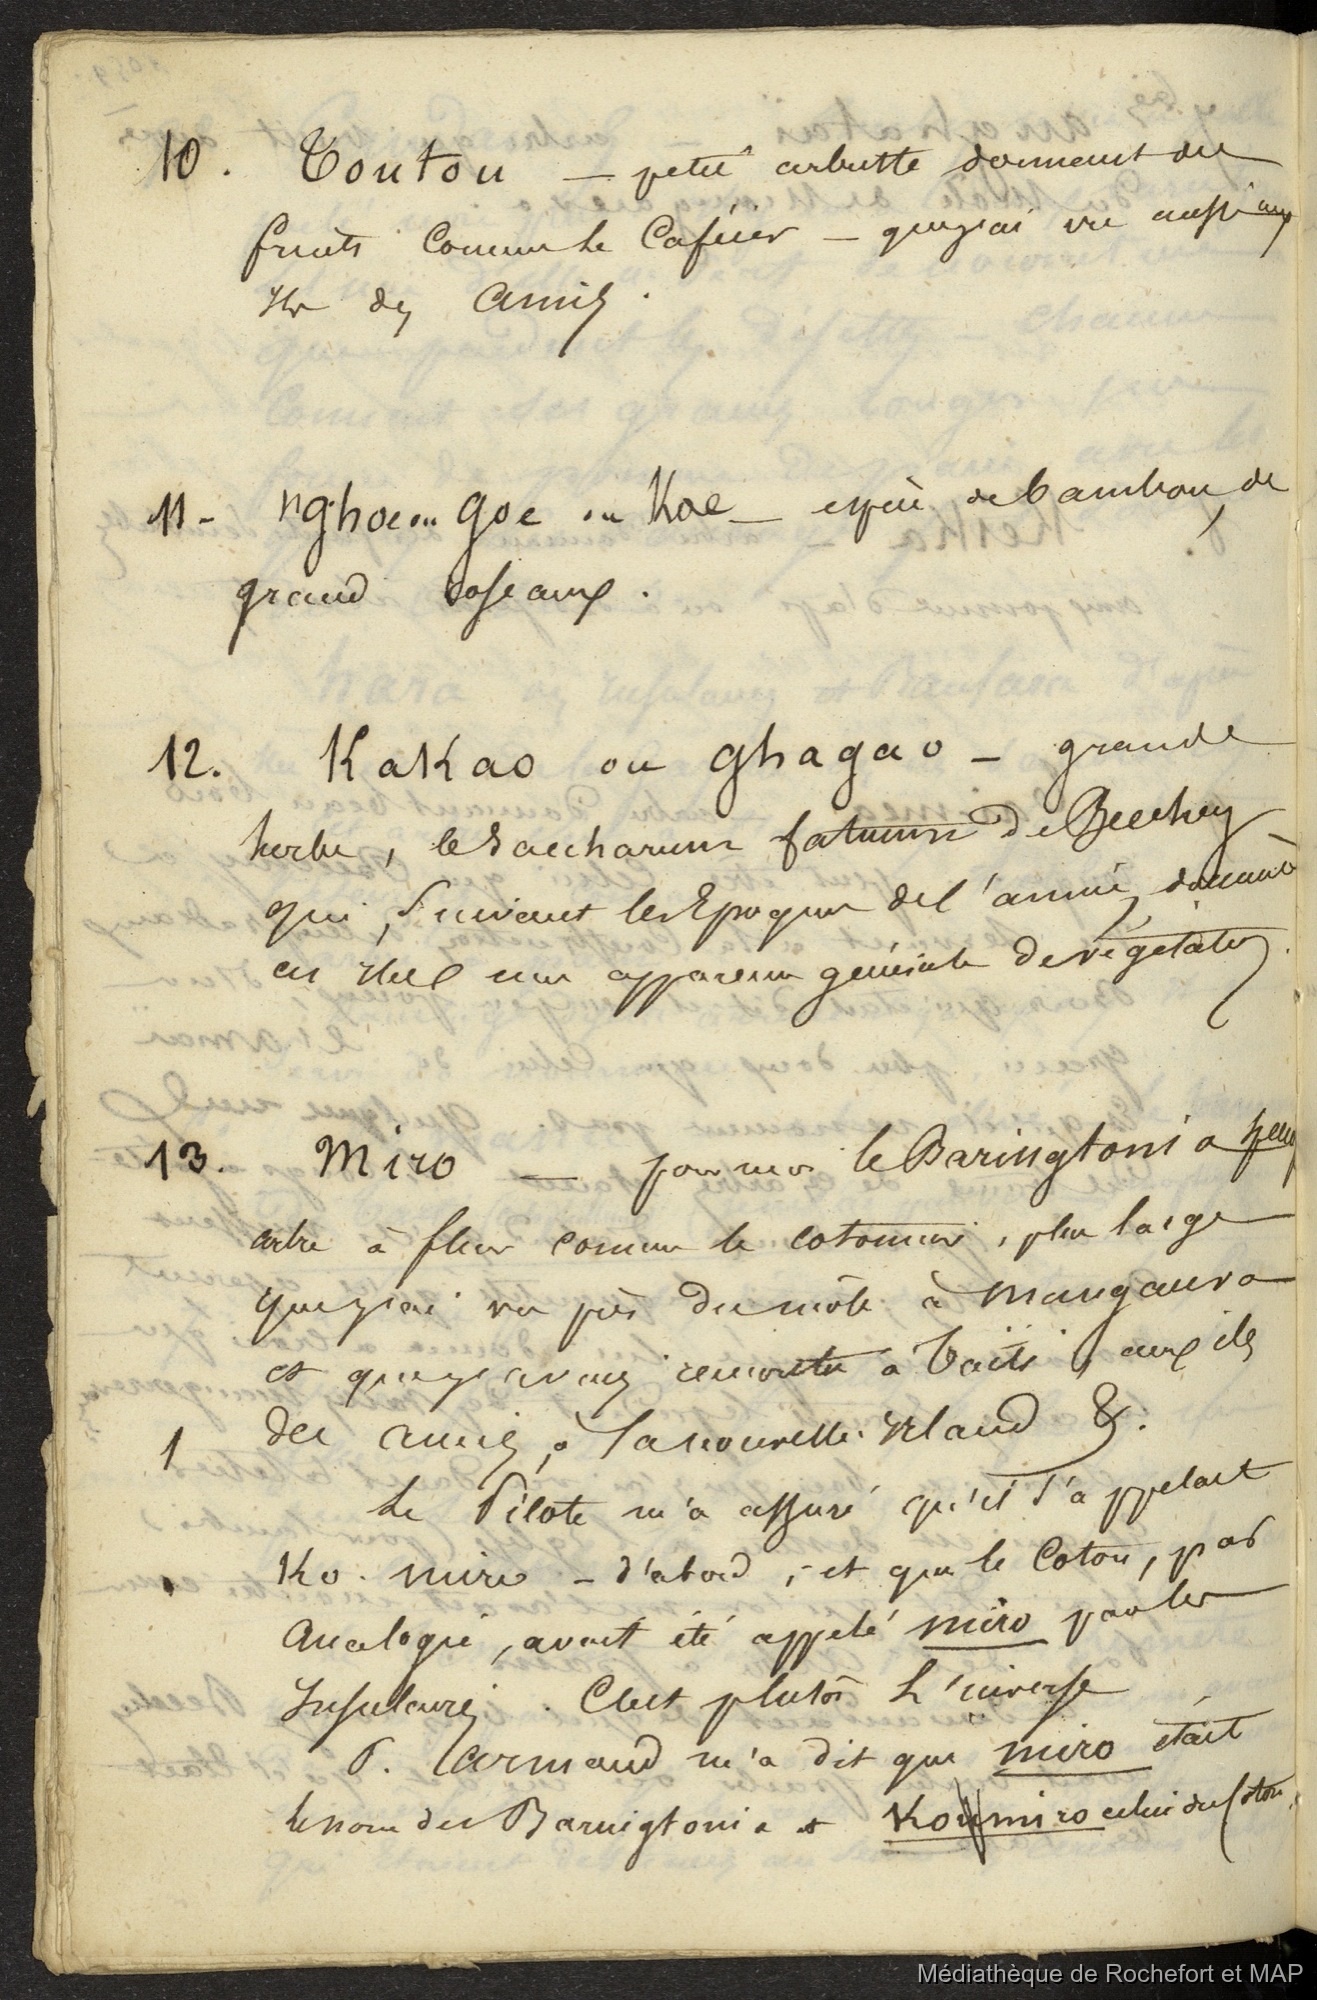 10. Toutou — petit arbuste donnant des
fruits comme le Caféier — que j'ai vu aussi aux
Iles des Amis.
11 - nghoe ou goe ou Koe — espèce de bambou, de
grand roseaux.
12. Kakao ou ghagao — grande
herbe, le Saccharum fatuum de Beechey
qui, suivant les Epoques de l'année, donnent
une apparence générale de végétation.
13. Miro — pour moi le Baringtonia
arbre à fleur comme le cotonnier, plus large
que j'ai vu près du môle à Mangareva
et que j'avais rencontré à Taïti, aux iles
1 des Amis, à la nouvelle Irland &.
Le Pilote m'a assuré qu'il s'appelait
Ko. miro - d'abord, et que le Coton, par
Analogie, avait été appelé miro par les
Insulaires. C'est plutôt l'inverse
P. Armand m'a dit que miro était
le nom des Baringtonia et Koumiro celui du Coton.
Médiathèque de Rochefort et MAP